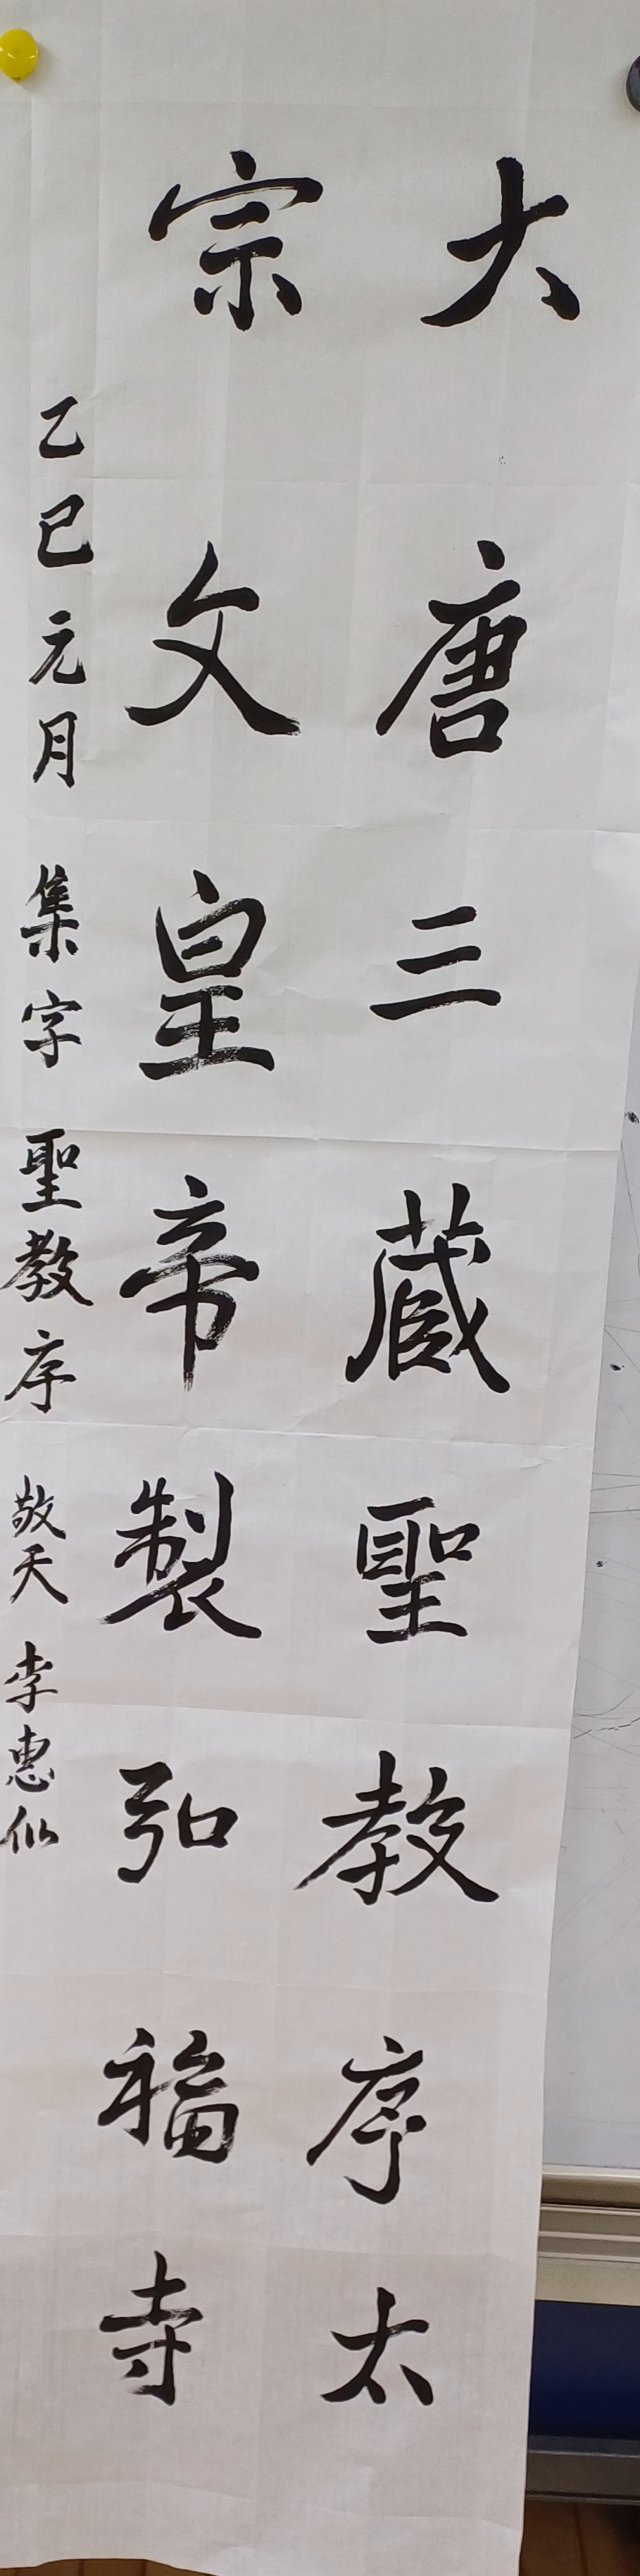 大唐三蔵聖教序太
宗文皇帝製弘福寺
乙巳元月 集字聖教序 敬天 李惠似